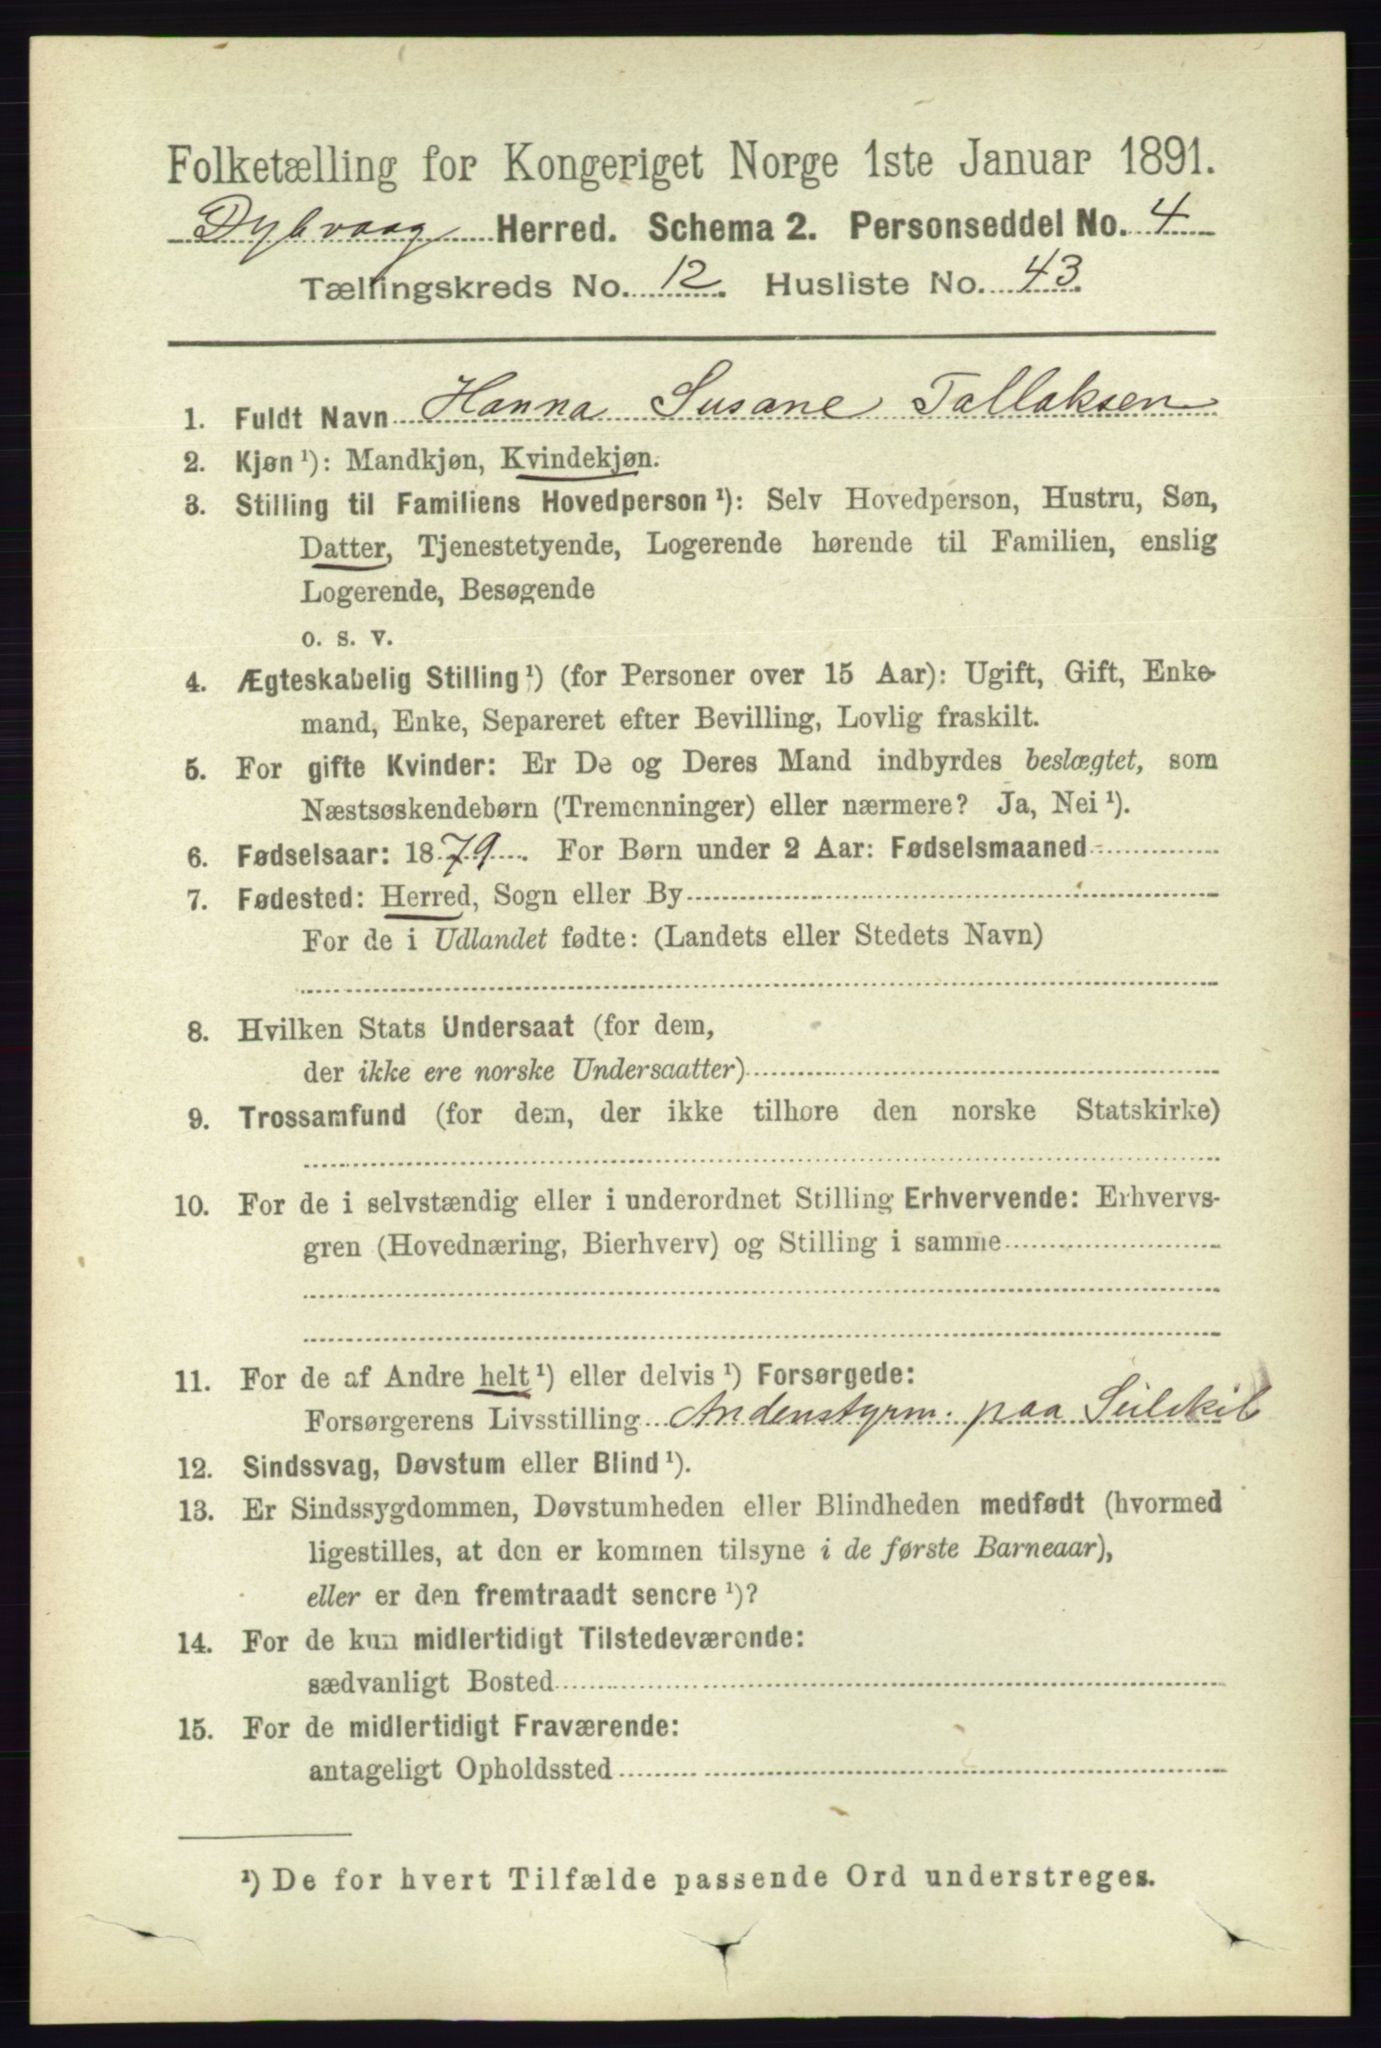 Folketælling for Kongeriget Norge 1ste Januar 1891.
Dybvaag Herred. Schema 2. Personseddel No. 4
Tællingskreds No. 12. Husliste No. 43.
1. Fuldt Navn Hanna Susane Tallaksen
2. Kjøn ¹): Mandkjøn, Kvindekjøn.
3. Stilling til Familiens Hovedperson ¹): Selv Hovedperson, Hustru, Søn,
Datter, Tjenestetyende, Logerende hørende til Familien, enslig
Logerende, Besøgende
o. s. v.
4. Ægteskabelig Stilling ¹) (for Personer over 15 Aar): Ugift, Gift, Enke-
mand, Enke, Separeret efter Bevilling, Lovlig fraskilt.
5. For gifte Kvinder: Er De og Deres Mand indbyrdes beslægtet, som
Næstsøskendebørn (Tremenninger) eller nærmere? Ja, Nei ¹).
6. Fødselsaar: 1879. For Børn under 2 Aar: Fødselsmaaned
7. Fødested: Herred, Sogn eller By
For de i Udlandet fødte: (Landets eller Stedets Navn)
8. Hvilken Stats Undersaat (for dem,
der ikke ere norske Undersaatter)
9. Trossamfund (for dem, der ikke tilhøre den norske Statskirke)
10. For de i selvstændig eller i underordnet Stilling Erhvervende: Erhvervs-
gren (Hovednæring, Bierhverv) og Stilling i samme
11. For de af Andre helt ¹) eller delvis ¹) Forsørgede:
Forsørgerens Livsstilling Andenstyrm. paa Seilskib
12. Sindssvag, Døvstum eller Blind ¹).
13. Er Sindssygdommen, Døvstumheden eller Blindheden medfødt (hvormed
ligestilles, at den er kommen tilsyne i de første Barneaar),
eller er den fremtraadt senere ¹)?
14. For de kun midlertidigt Tilstedeværende:
sædvanligt Bosted
15. For de midlertidigt Fraværende:
antageligt Opholdssted
¹) De for hvert Tilfælde passende Ord understreges.